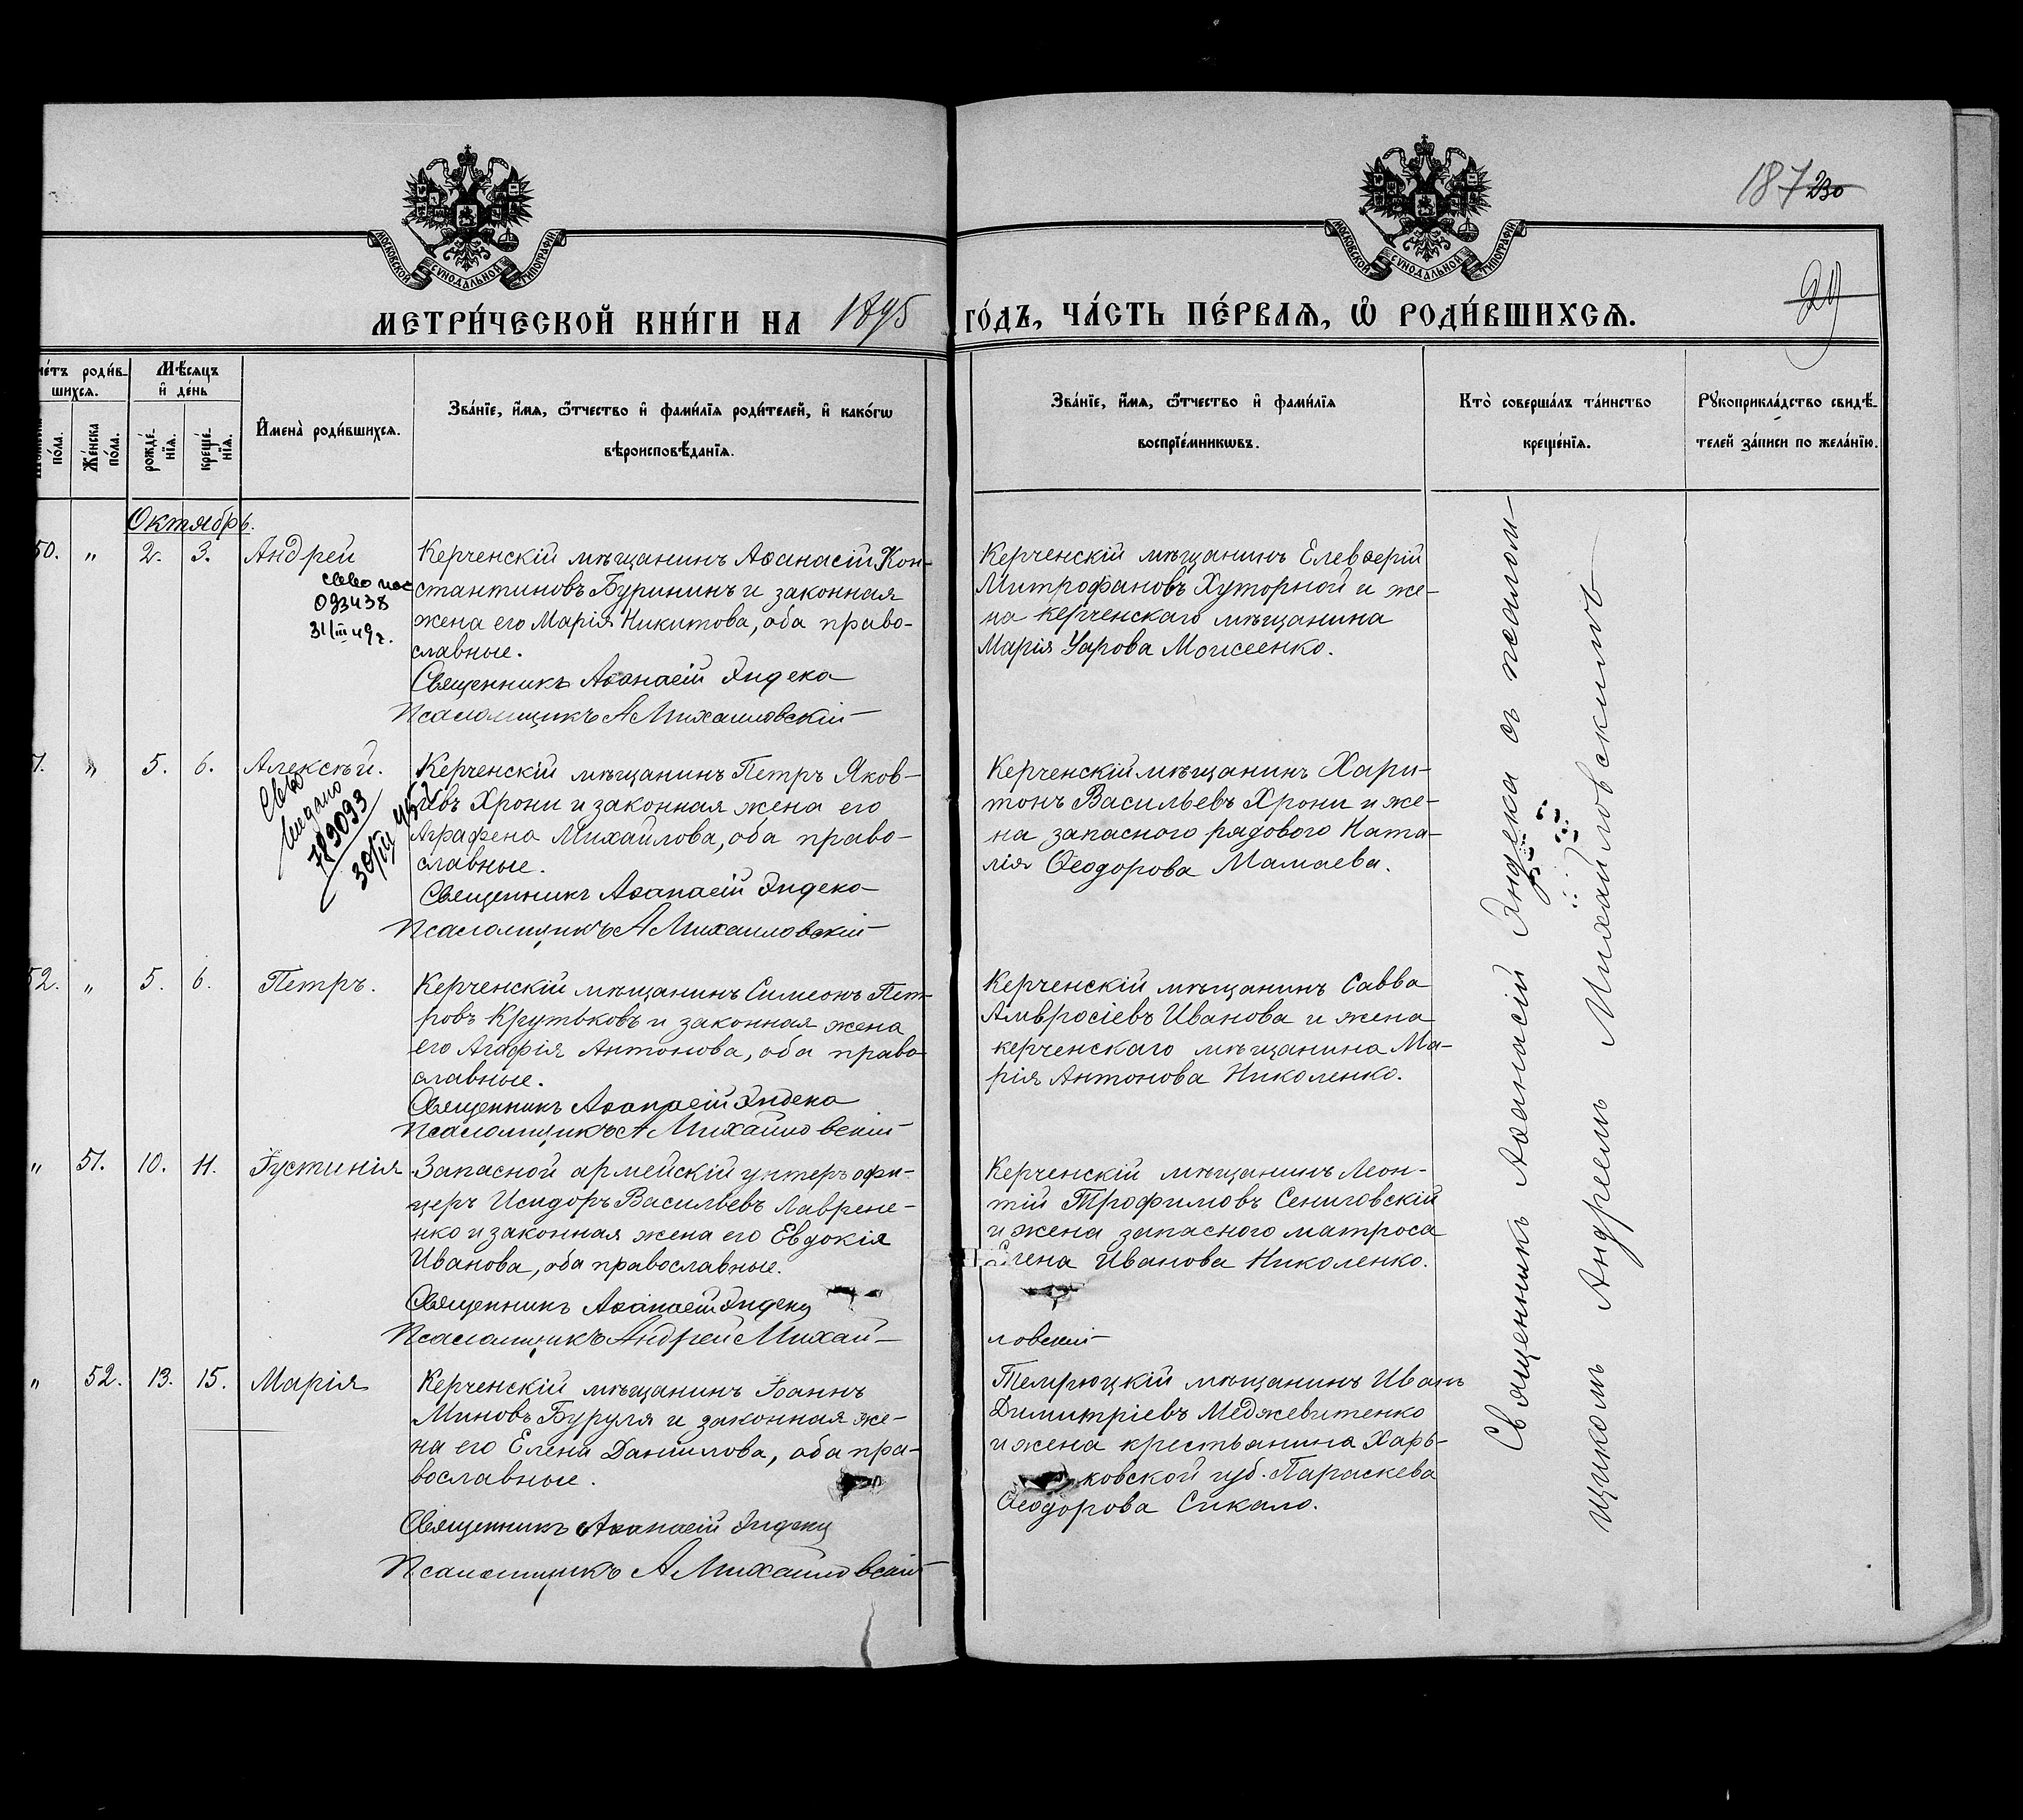 187 230
29
МОСКОВСКОЙ СУНОДАЛЬНОЙ ТИПОГРАФІИ
МОСКОВСКОЙ СУНОДАЛЬНОЙ ТИПОГРАФІИ
МЕТРИ́ЧЕСКОЙ КНИ́ГИ НА 1895 ГО́ДЪ, ЧА́СТЬ ПЕ́РВАѦ, Ѡ҆ РОДИ́ВШИХСѦ.
че́тъ роди́в-
шихсѧ.
по́ла.
Же́нска
по́ла.
Мѣ́сѧцъ
и҆ де́нь
рожде́-
нїѧ.
креще́-
нїѧ.
И҆мена̀ роди́вшихсѧ.
Зва́нїе, и҆́мѧ, ѻ҆́тчество и҆ фами́лїѧ роди́телей, и҆ како́гѡ
вѣроисповѣ́данїѧ.
Зва́нїе, и҆́мѧ, ѻ҆́тчество и҆ фами́лїѧ
воспрїе́мникѡвъ.
Кто̀ соверша́лъ та́инство
креще́нїѧ.
Рꙋкоприкла́дство свидѣ́-
телей за́писи по жела́нїю.
Октябрь.
50. " 2. 3. Андрей
093438
31/III 49 г.
Керченскій мѣщанинъ Аѳанасій Кон-
стантиновъ Бурининъ и законная
жена его Марія Никитова, оба право-
славные.
Священникъ Аѳанасій Яндека
Псаломщикъ А Михайловскій
Керченскій мѣщанинъ Елевѳерій
Митрофановъ Хуторной и же-
на керченскаго мѣщанина
Марія Уарова Моисеенко.
1. " 5. 6. Алексѣй.
789093
Керченскій мѣщанинъ Петръ Яков-
левъ Хрони и законная жена его
Аграфена Михайлова, оба право-
славные.
Священникъ Аѳанасій Яндека
Псаломщикъ А Михайловскій
Керченскій мѣщанинъ Хари-
тонъ Васильевъ Хрони и же-
на запасного рядового Ната-
лія Ѳеодорова Мамаева.
52. " 5. 6. Петръ.
Керченскій мѣщанинъ Симеонъ Пет-
ровъ Крутьковъ и законная жена
его Агафія Антонова, оба право-
славные.
Священникъ Аѳанасій Яндека
Псаломщикъ А Михайловскій
Керченскій мѣщанинъ Савва
Амвросіевъ Иванова и жена
керченскаго мѣщанина Ма-
рія Антонова Николенко.
" 51. 10. 11. Іустинія.
Запасной армейскій унтеръ офи-
церъ Исидоръ Васильевъ Лаврене-
нко и законная жена его Евдокія
Иванова, оба православные.
Священникъ Аѳанасій Яндека
Псаломщикъ Андрей Михай-
ловскій
Керченскій мѣщанинъ Леон-
тій Трофимовъ Сениговскій
и жена запасного матроса
Елена Иванова Николенко.
" 52. 13. 15. Марія
Керченскій мѣщанинъ Іоаннъ
Миновъ Буруля и законная же-
на его Елена Данилова, оба пра-
вославные.
Священникъ Аѳанасій Яндека
Псаломщикъ А Михайловскій
Темрюцкій мѣщанинъ Иванъ
Димитріевъ Меджевитенко
и жена крестьянина Харь-
ковской губ. Параскева
Ѳеодорова Сикало.
Священникъ Аѳанасій Яндека съ псалом-
щикомъ Андреемъ Михайловскимъ